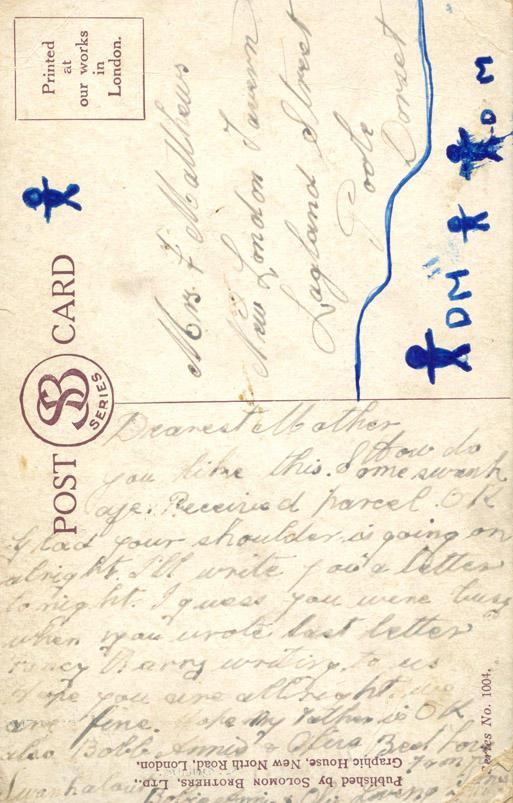 Printed
at
our works
in
London.
POST CARD
SB
SERIES
Mrs F Matthews
New London Tavern
Lagland Street
Poole
Dorset
DM
DM
Dearest Mother
How do
you like this. Some swank
age. Received parcel OK
Glad your shoulder is going on
alright. I'll write you a letter
tonight. I guess you were busy
when you wrote last letter
Fancy Harry writing to us
Hope you are allright, we
are fine. Hope my Father is OK
also Bob Annie &
Published by SOLOMON BROTHERS, LTD.,
Graphic House, New North Road, London.
Series No. 1004.